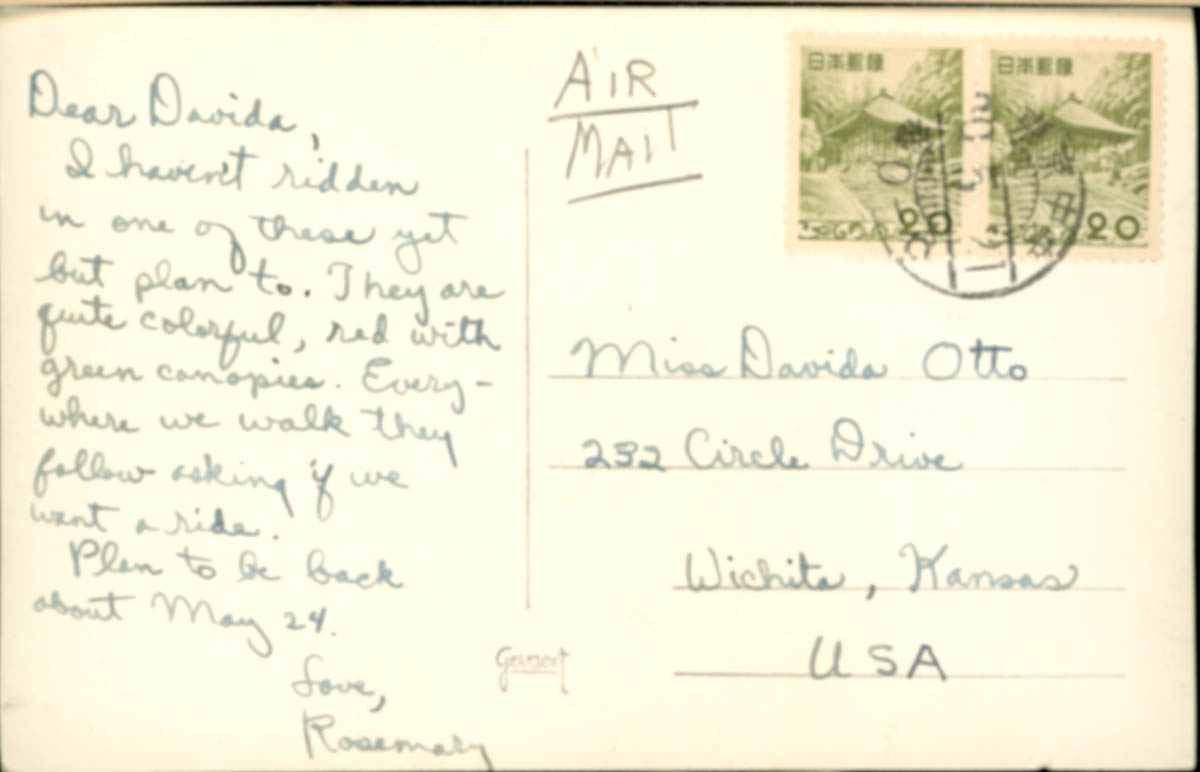 Dear Davida,
I haven't ridden
in one of these yet
but plan to. They are
quite colorful, red with
green canopies. Every-
where we walk they
follow asking if we
want a ride.
Plan to be back
about May 24.
Love,
Rosemary
AIR
MAIL
日本郵便
日本郵便
20
20
Miss Davida Otto
232 Circle Drive
Wichita, Kansas
USA
Gevaert